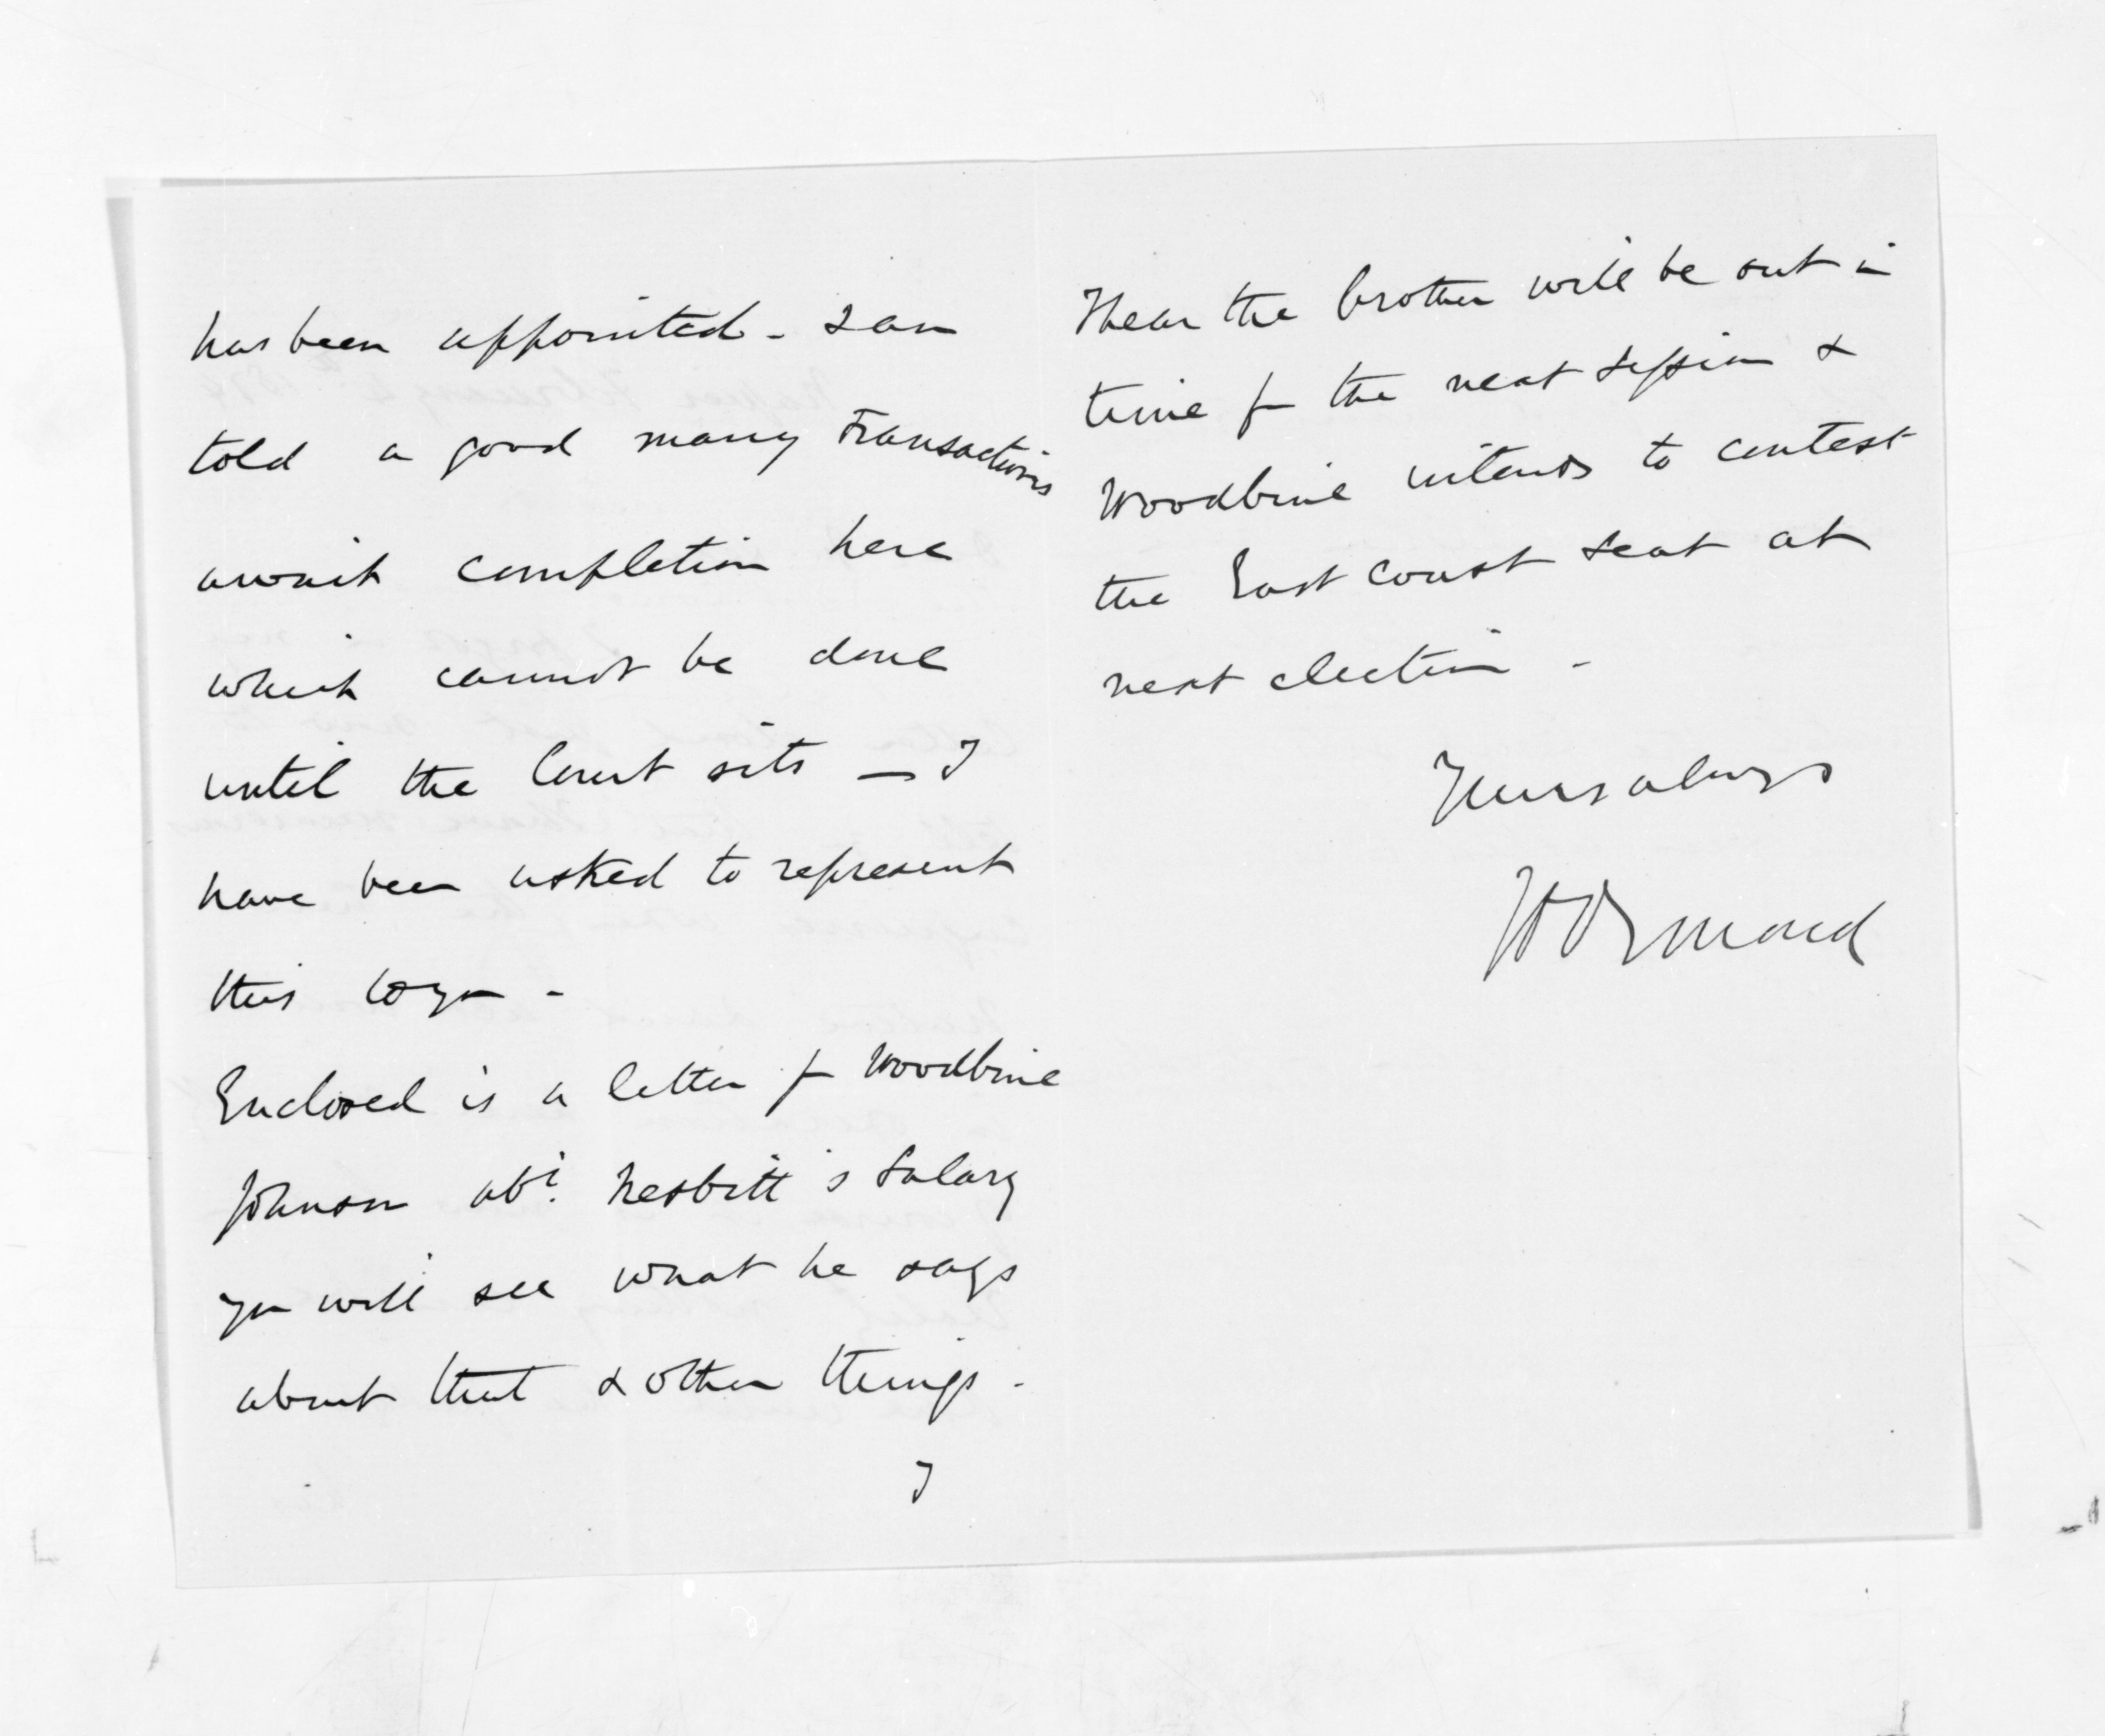 has been appointed - I am
told a good many transactions
await completion here
which cannot be done
until the Court sits — I
have been asked to represent
this to you -
Enclosed is a letter for Woodbine
Johnson abt. Nesbitt's salary
you will see what he says
about that & other things -
I
I hear the brother will be out in
time for the next session &
Woodbine intends to contest
the East Coast seat at
next election -
Yours always
J D Ormond